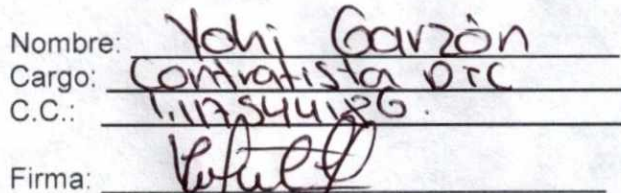 Nombre: Yohi Garzòn
Cargo: Contratista DTC
C.C.: 1.117.544.186.
Firma: